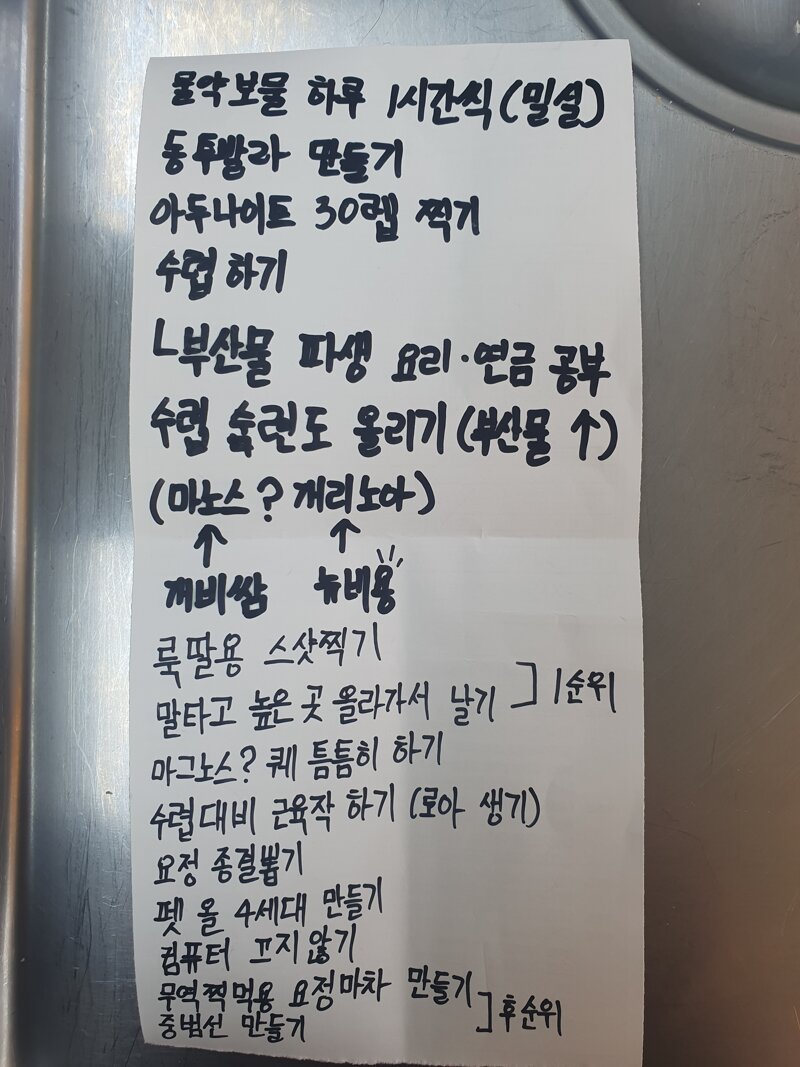 물약보물 하루 1시간씩(밀실)
동투발라 만들기
아두나이트 30렙 찍기
수렵 하기
ㄴ부산물 파생 요리·연금 공부
수렵 숙련도 올리기(부산물 ↑)
(마노스? 개리노아)
↑ ↑
개비쌈 뉴비용
룩딸용 스샷찍기
말타고 높은 곳 올라가서 날기 ] 1순위
마그노스? 퀘 틈틈히 하기
수렵대비 근육작 하기 (로아 생기)
요정 종결뽑기
펫 올 4세대 만들기
컴퓨터 끄지 않기
무역찍먹용 요정마차 만들기
중범선 만들기 ] 후순위